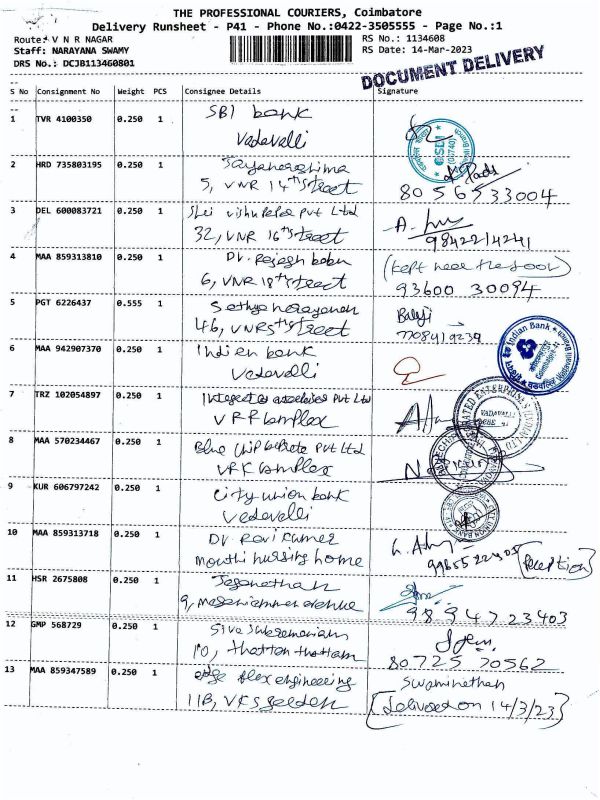 THE PROFESSIONAL COURIERS, Coimbatore
Delivery Runsheet - P41 - Phone No.:0422-3505555 - Page No.:1
Route: V N R NAGAR
RS No.: 1134608
Staff: NARAYANA SWAMY
RS Date: 14-Mar-2023
DRS No.: DCJB113460801
DOCUMENT DELIVERY
S No Consignment No Weight PCS Consignee Details Signature
1 TVR 4100350 0.250 1 SBI bank
Vadavalli
2 HRD 735803195 0.250 1
5, VNR 14th Street 80 56533004
3 DEL 600083721 0.250 1 Pvt Ltd
32, VNR 16th Street 9842214241
4 MAA 859313810 0.250 1 Dr. Rajesh babu (kept near the door)
6, VNR 18th Street 93600 30094
5 PGT 6226437 0.555 1 Sathya narayanan Balaji
46, VNR 5th Street 7708419239
Indian Bank
6 MAA 942907370 0.250 1 Indian bank
Vadavalli
7 TRZ 102054897 0.250 1 Pvt Ltd
VRR Complex
VADAVALLI
8 MAA 570234467 0.250 1 Blue Chip Pvt Ltd
VRR Complex
9 KUR 606797242 0.250 1 City union bank
Vadavalli
10 MAA 859313718 0.250 1 Dr. Ravi Kumar
nursing home (Reception)
11 HSR 2675808 0.250 1 Jaganathan
9, 98947 23403
12 GMP 568729 0.250 1 Siva Subramaniam
10, thottam 80725 70562
13 MAA 859347589 0.250 1 edge flex engineering Swaminathan
11B, VKS Garden (delivered on 14/3/23)